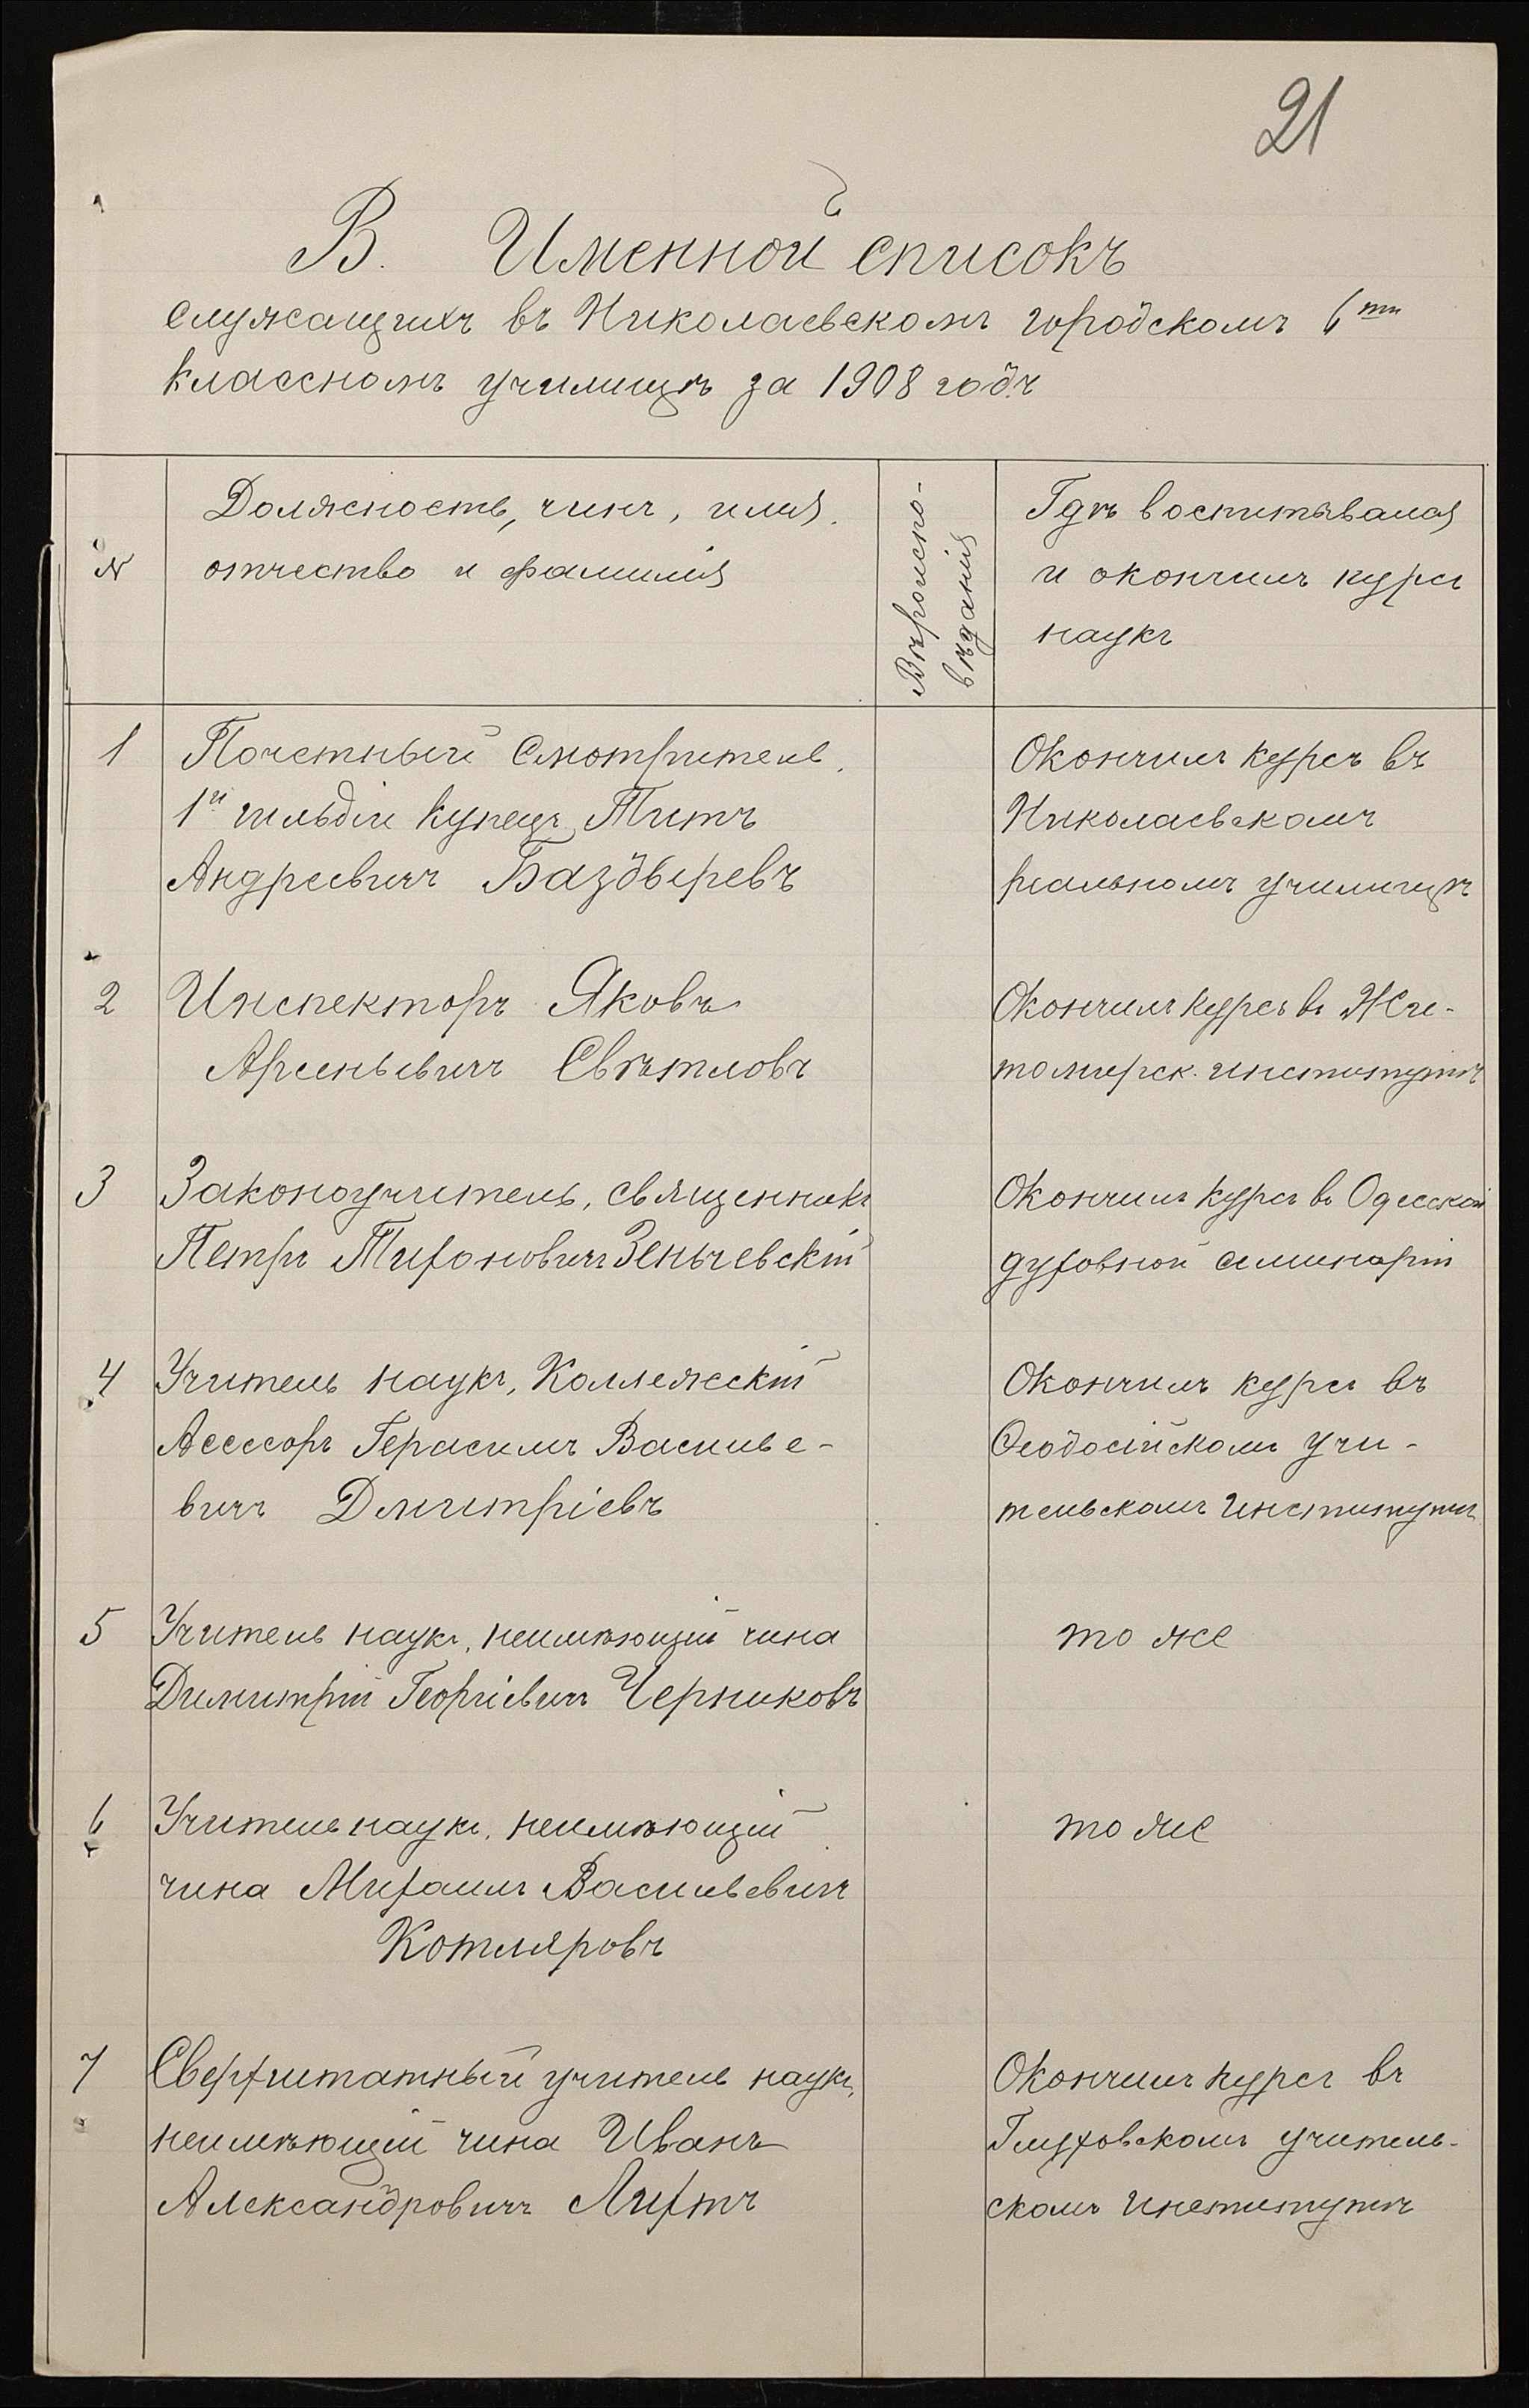 21
В. Именной списокъ
служащихъ въ Николаевскомъ городскомъ 6ти
классномъ училищѣ за 1908 годъ
№
Должность, чинъ, имя,
отчество и фамилія
Вѣроиспо-
вѣданія
Гдѣ воспитывался
и окончилъ курсъ
наукъ
1
Почетный Смотритель,
1й гильдіи купецъ Титъ
Андреевичъ Баздыревъ
Окончилъ курсъ въ
Николаевскомъ
реальномъ училищѣ
2
Инспекторъ Яковъ
Арсеньевичъ Свѣтловъ
Окончилъ курсъ въ Жи-
томирск. институтѣ
3
Законоучитель, священникъ
Петръ Тихоновичъ Зеньчевскій
Окончилъ курсъ въ Одесской
духовной семинаріи
4
Учитель наукъ, Коллежскій
Асессоръ Герасимъ Василье-
вичъ Дмитріевъ
Окончилъ курсъ въ
Ѳеодосійскомъ учи-
тельскомъ институтѣ
5
Учитель наукъ, неимѣющій чина
Димитрій Георгіевичъ Черниковъ
то же
6
Учитель наукъ, неимѣющій
чина Михаилъ Васильевичъ
Котляровъ
то же
7
Сверхштатный учитель наукъ,
неимѣющій чина Иванъ
Александровичъ Лихтъ
Окончилъ курсъ въ
Глуховскомъ учитель-
скомъ институтѣ